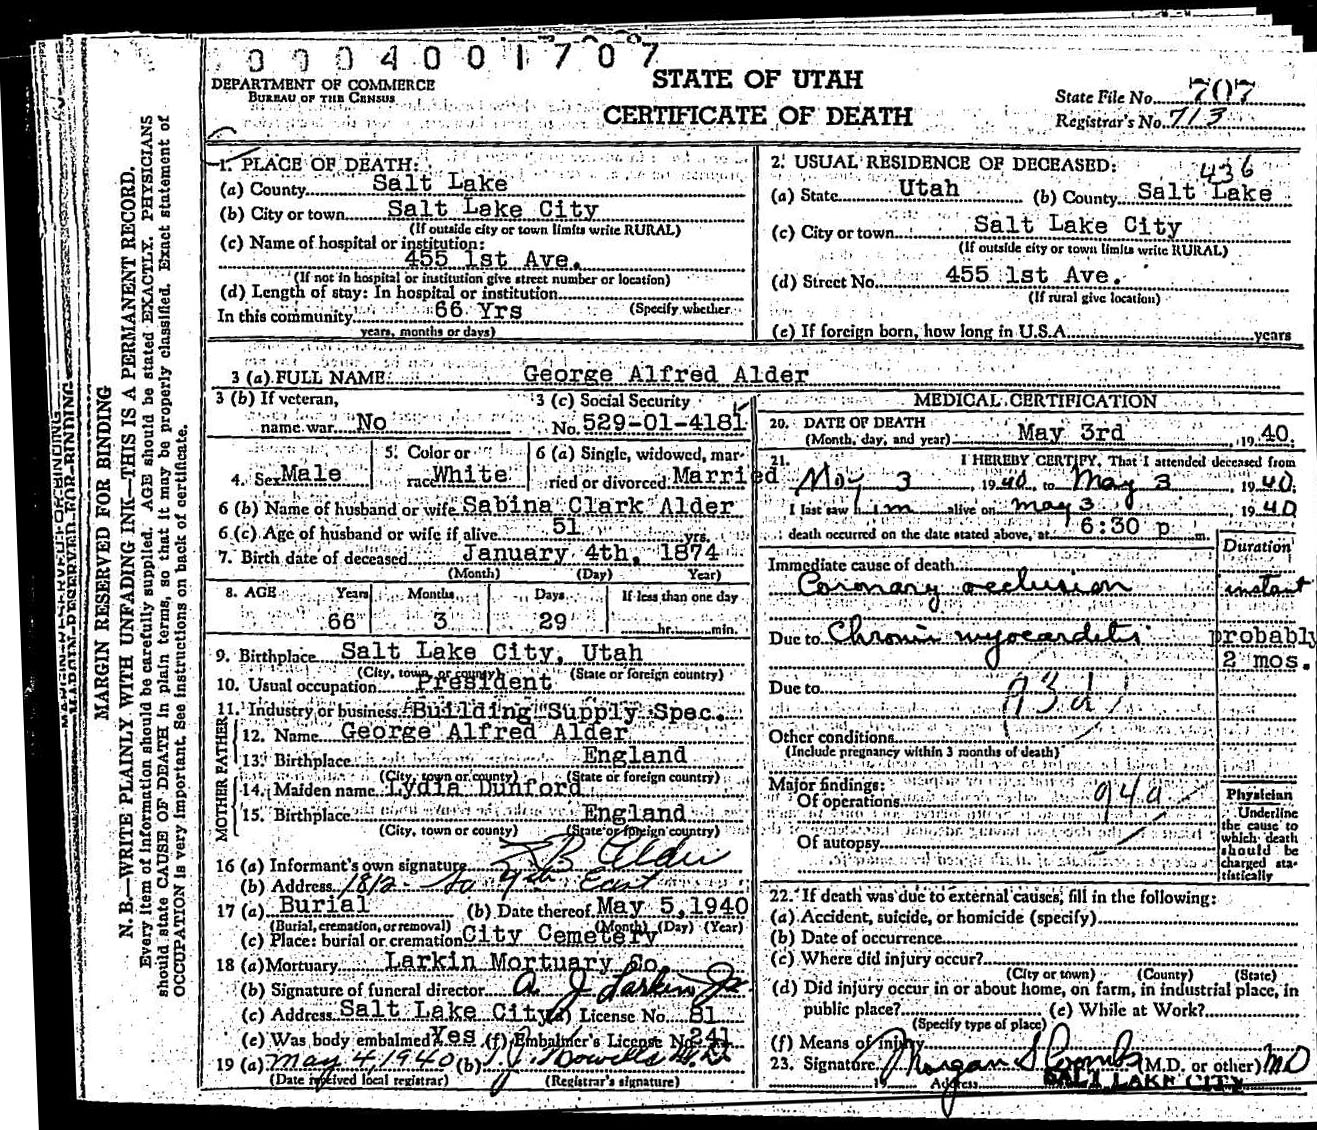 0004001707
DEPARTMENT OF COMMERCE
BUREAU OF THE CENSUS
STATE OF UTAH
CERTIFICATE OF DEATH
State File No. 707
Registrar's No. 713
MARGIN RESERVED FOR BINDING
N. B.—WRITE PLAINLY WITH UNFADING INK—THIS IS A PERMANENT RECORD.
Every item of information should be carefully supplied. AGE should be stated EXACTLY. PHYSICIANS
should state CAUSE OF DEATH in plain terms, so that it may be properly classified. Exact statement of
OCCUPATION is very important. See instructions on back of certificate.
1. PLACE OF DEATH:
(a) County Salt Lake
(b) City or town Salt Lake City
(If outside city or town limits write RURAL)
(c) Name of hospital or institution:
455 1st Ave.
(If not in hospital or institution give street number or location)
(d) Length of stay: In hospital or institution
In this community 66 Yrs (Specify whether
years, months or days)
2. USUAL RESIDENCE OF DECEASED:
436
(a) State Utah (b) County Salt Lake
(c) City or town Salt Lake City
(If outside city or town limits write RURAL)
(d) Street No. 455 1st Ave.
(If rural give location)
(e) If foreign born, how long in U.S.A. years
3 (a) FULL NAME George Alfred Alder
3 (b) If veteran, name war No
3 (c) Social Security No. 529-01-4181
4. Sex Male
5. Color or race White
6 (a) Single, widowed, married or divorced Married
6 (b) Name of husband or wife Sabina Clark Alder
6 (c) Age of husband or wife if alive 51 yrs.
7. Birth date of deceased January 4th, 1874
(Month) (Day) Year)
8. AGE Years Months Days If less than one day
66 3 29 hr. min.
9. Birthplace Salt Lake City, Utah
(City, town, or county) (State or foreign country)
10. Usual occupation President
11. Industry or business Building Supply Spec.
FATHER
12. Name George Alfred Alder
13. Birthplace England
(City, town or county) (State or foreign country)
MOTHER
14. Maiden name Lydia Dunford
15. Birthplace England
(City, town or county) (State or foreign country)
16 (a) Informant's own signature B Alder
(b) Address 1812 So 9th East
17 (a) Burial (b) Date thereof May 5, 1940
(Burial, cremation, or removal) (Month) (Day) (Year)
(c) Place: burial or cremation City Cemetery
18 (a) Mortuary Larkin Mortuary Co
(b) Signature of funeral director A. J. Larkin Jr.
(c) Address Salt Lake City (d) License No. 81
(e) Was body embalmed? Yes (f) Embalmer's License No. 241
19 (a) May 4, 1940 (b)
(Date received local registrar) (Registrar's signature)
MEDICAL CERTIFICATION
20. DATE OF DEATH
(Month, day, and year) May 3rd, 1940.
21. I HEREBY CERTIFY, That I attended deceased from
May 3, 1940, to May 3, 1940.
I last saw him alive on May 3, 1940
death occurred on the date stated above, at 6:30 p m.
Duration
Immediate cause of death
Coronary occlusion instant
Due to Chronic myocarditis probably
2 mos.
Due to 93d
Other conditions
(Include pregnancy within 3 months of death)
Major findings:
Of operations 94a
Of autopsy
Physician
Underline
the cause to
which death
should be
charged sta-
tistically
22. If death was due to external causes, fill in the following:
(a) Accident, suicide, or homicide (specify)
(b) Date of occurrence
(c) Where did injury occur?
(City or town) (County) (State)
(d) Did injury occur in or about home, on farm, in industrial place, in
public place? (e) While at Work?
(Specify type of place)
(f) Means of injury
23. Signature Morgan S Coombs (M.D. or other) MD
19 Address SALT LAKE CITY